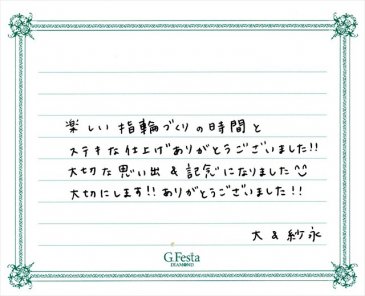 楽しい指輪づくりの時間と
ステキな仕上げありがとうございました!!
大切な思い出&記念になりました
大切にします!!ありがとうございました!!
大&紗永
G.Festa
DIAMOND